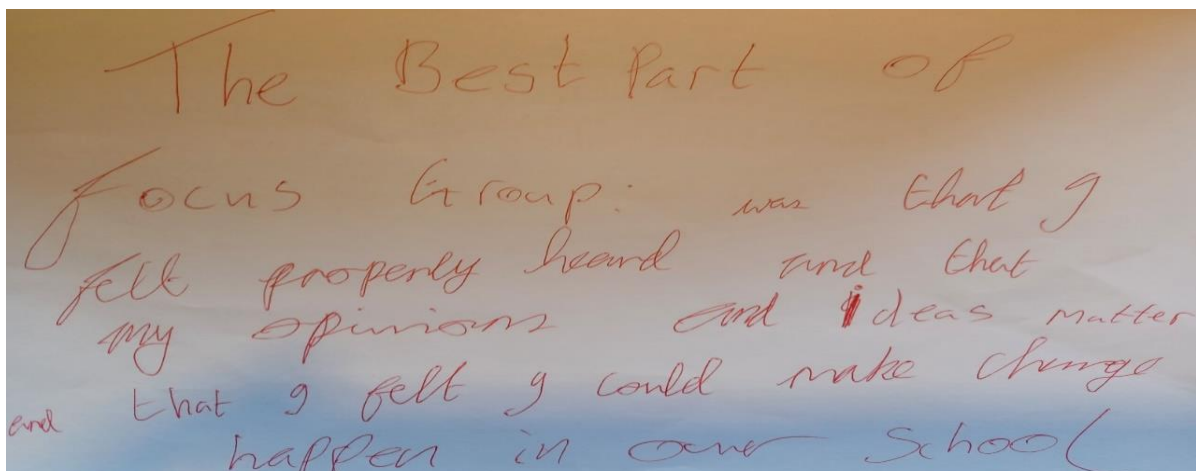 The Best Part of
Focus Group: was that I
felt properly heard and that
my opinions and ideas matter
and that I felt I could make change
happen in our School